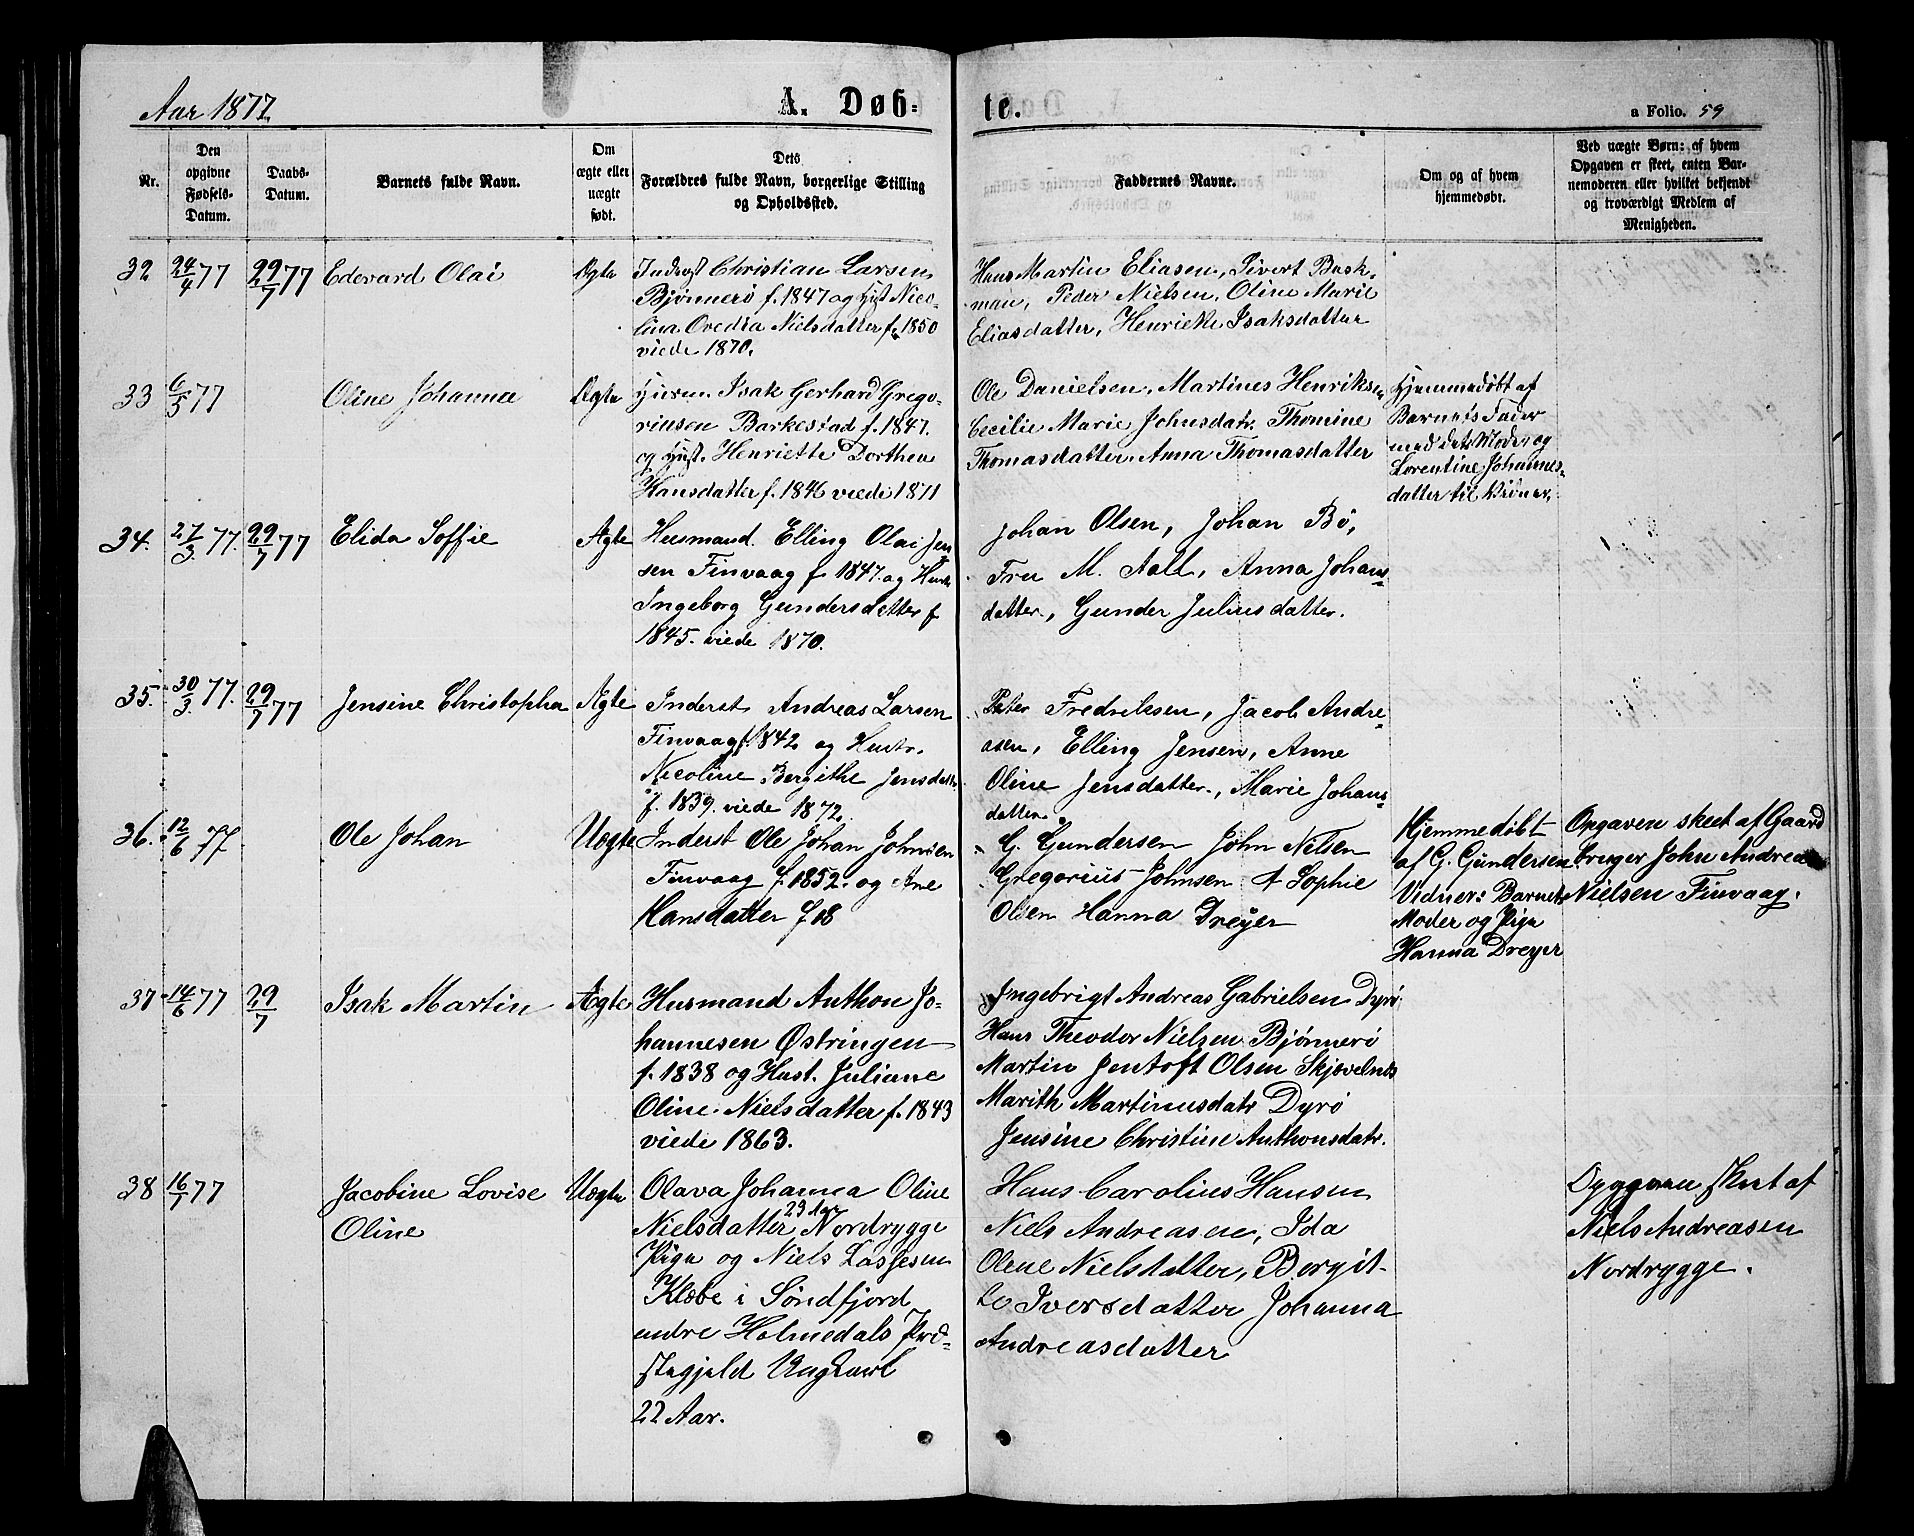 Aar 1877.
A. Døb-
te.
a Folio. 59
Nr.
Den
opgivne
Fødsels-
Datum.
Daabs-
Datum.
Barnets fulde Navn.
Om
ægte eller
uægte
født.
Dets
Forældres fulde Navn, borgerlige Stilling
og Opholdssted.
Faddernes Navne.
Om og af hvem
hjemmedøbt.
Ved uægte Børn: af hvem
Opgaven er skeet, enten Bar-
nemoderen eller hvilket bekjendt
og troværdigt Medlem af
Menigheden.
32 24/4 77 29/7 77 Edevard Olai Ægte
Inderst Christian Larsen
Bjønnerö f. 1847 og Hust Nico-
lina Ovedia Nielsdatter f. 1850
viede 1870.
Hans Martin Eliasen, Sivert Busk-
man, Peder Nielsen, Oline Marie
Eliasdatter, Henrieke Isaksdatter
33 6/5 77 Oline Johanna Ægte
Isak Gerhard Grego-
riusen Barkestad f. 1847.
og Hust. Henriette Dorthea
Hansdatter f. 1846 viede 1871
Ole Danielsen, Martines Henriksen
Cecilie Marie Johnsdatr. Thomine
Thomasdatter, Anna Thomasdatter
Hjemmedøbt af
Barnets Fader
med dets Moder og
Lorentine Johannes-
datter til Vidner.
34. 27/3 77. 29/7 77 Elida Soffie Ægte
Husmand. Elling Olai Jen
sen Finvaag f 1847. og Hustr
Ingeborg Gundersdatter f
1845. viede 1870.
Johan Olsen, Johan Bö,
Fru M. Aall, Anna Johans
datter., Gunder Juliusdatter.
35. 30/3 77. 29/7 77 Jensine Christopha Ægte
Inderst Andreas Larsen
Finvaag f. 1842 og Hustr.
Nicoline Bergithe Jensdatr.
f. 1839. viede 1872.
Peter Fredriksen, Jacob Andre-
asen, Elling Jensen, Anne
Oline Jensdatter., Marie Johans-
datter.
36. 12/6 77 Ole Johan Uægte
Inderst Ole Johan Johnsen
Finvaag f. 1852. og Ane
Hansdatter f. 18
G. Gundersen John Nilsen
Gregorius Johnsen A Sophie
Olsen Hanna Dreyer
Hjemmedöbt
af G. Gundersen
Vidner: Barnets
Moder og Pige
Hanna Dreyer
Opgaven skeet af Gaard
bruger John Andreas
Nielsen Finvaag.
37 14/6 77 29/7 Isak Martin Ægte
Husmand Anthon Jo-
hannesen Østringen
f. 1838 og Hust. Juliane
Oline Nielsdatter f. 1843
viede 1863.
Ingebrigt Andreas Gabrielsen Dyrö
Hans Theodor Nielsen Bjönnerö
Martin Jentoft Olsen Skjovelnes
Marith Martinusdatr Dyrö
Jensine Christine Anthonsdatr.
38 16/7 77 Jacobine Lovise Uægte
Oline
Olava Johanna Oline
Nielsdatter 23 Aar Nordrygge
Pige og Niels Lassesen
Klæbe i Söndfjord
endre Holmedals Præ-
stegjeld Ungkarl
22 Aar.
Hans Carolius Hansen
Niels Andreasen, Ida
Olene Nielsdatter, Bergit-
te Iversdatter Johanna
Andreasdatter
Opgaven skeet af
Niels Andreasen
Nordrygge.